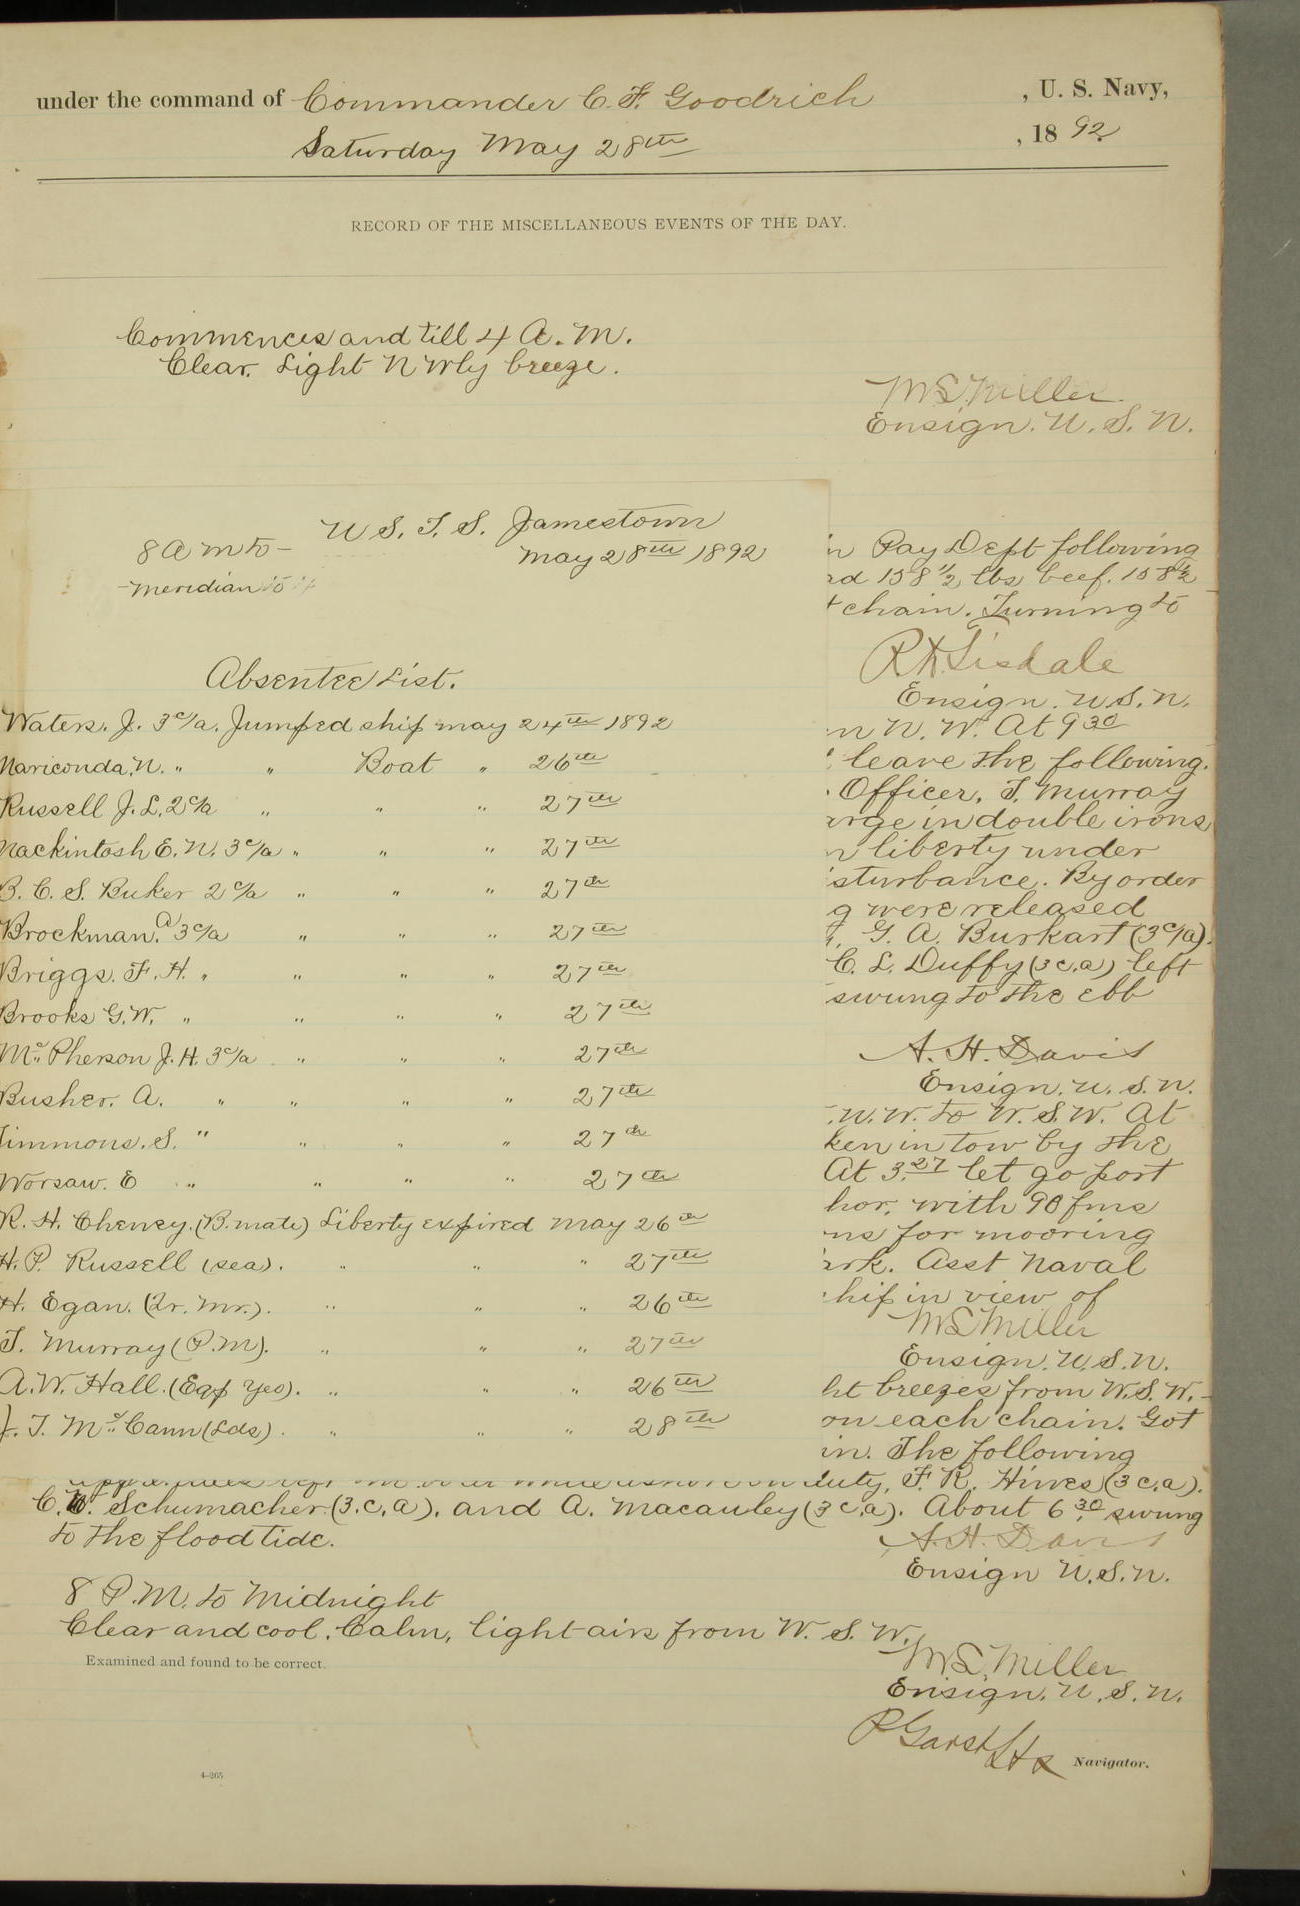 under the command of Commander C. F. Goodrich , U. S. Navy,
Saturday May 28th , 1892
RECORD OF THE MISCELLANEOUS EVENTS OF THE DAY.
Commences and till 4 A. M.
Clear. Light N Wly breeze.
M L Miller
Ensign. U. S. N.
U. S. T. S. Jamestown
8 A m to -
May 28th 1892
- meridian
Absentee List.
Waters. J. 3 c/a. Jumped ship may 24th 1892
Nariconda, N. " " Boat " 26th
Russell J. L. 2 c/a " " " 27th
Mackintosh E. N. 3 c/a " " " 27th
B. C. S. Buker 2 c/a " " " 27th
Brockman. A 3 c/a " " " 27th
Briggs. F. H. " " " " 27th
Brooks G. W. " " " " 27th
McPherson J. H. 3 c/a " " " 27th
Busher. A. " " " " 27th
Timmons. S. " " " " 27th
Worsaw. E " " " " 27th
R. H. Cheney. (B. mate) Liberty expired May 26th
H. P. Russell (sea). " " " 27th
H. Egan. (Qr. Mr.). " " " 26th
T. Murray (P. M). " " " 27th
A. W. Hall. (Eqp Yeo). " " " 26th
J. T. McCann (Lds). " " " 28th
in Pay Dept following
158 1/2 lbs beef. 158 1/2
chain. Turning to
R H Tisdale
Ensign. U. S. N.
N. W. At 9 30
leave the following.
Officer, T. Murray
arge in double irons
n liberty under
sturbance. By order
g were released
G. A. Burkart (3 c/a).
C. L. Duffy (3 c. a) left
swung to the ebb
A. H. Davis
Ensign. U. S. N.
N. W. to W. S. W. At
ken in tow by the
At 3.27 let go port
hor, with 90 fms
ns for mooring
ark. Asst Naval
hip in view of
M L Miller
Ensign. U. S. N.
ht breezes from W. S. W. -
on each chain. Got
in. The following
duty, F. R. Hines (3 c. a).
Schumacher (3. c, a). and A. Macauley (3 c. a). About 6.30 swung
to the flood tide.
A. H. Davis
Ensign U. S. N.
8 P. M. to Midnight
Clear and cool. Calm, light airs from W. S. W.
Examined and found to be correct.
M L Miller
Ensign. U. S. N.
P Garst
Navigator.
4—265